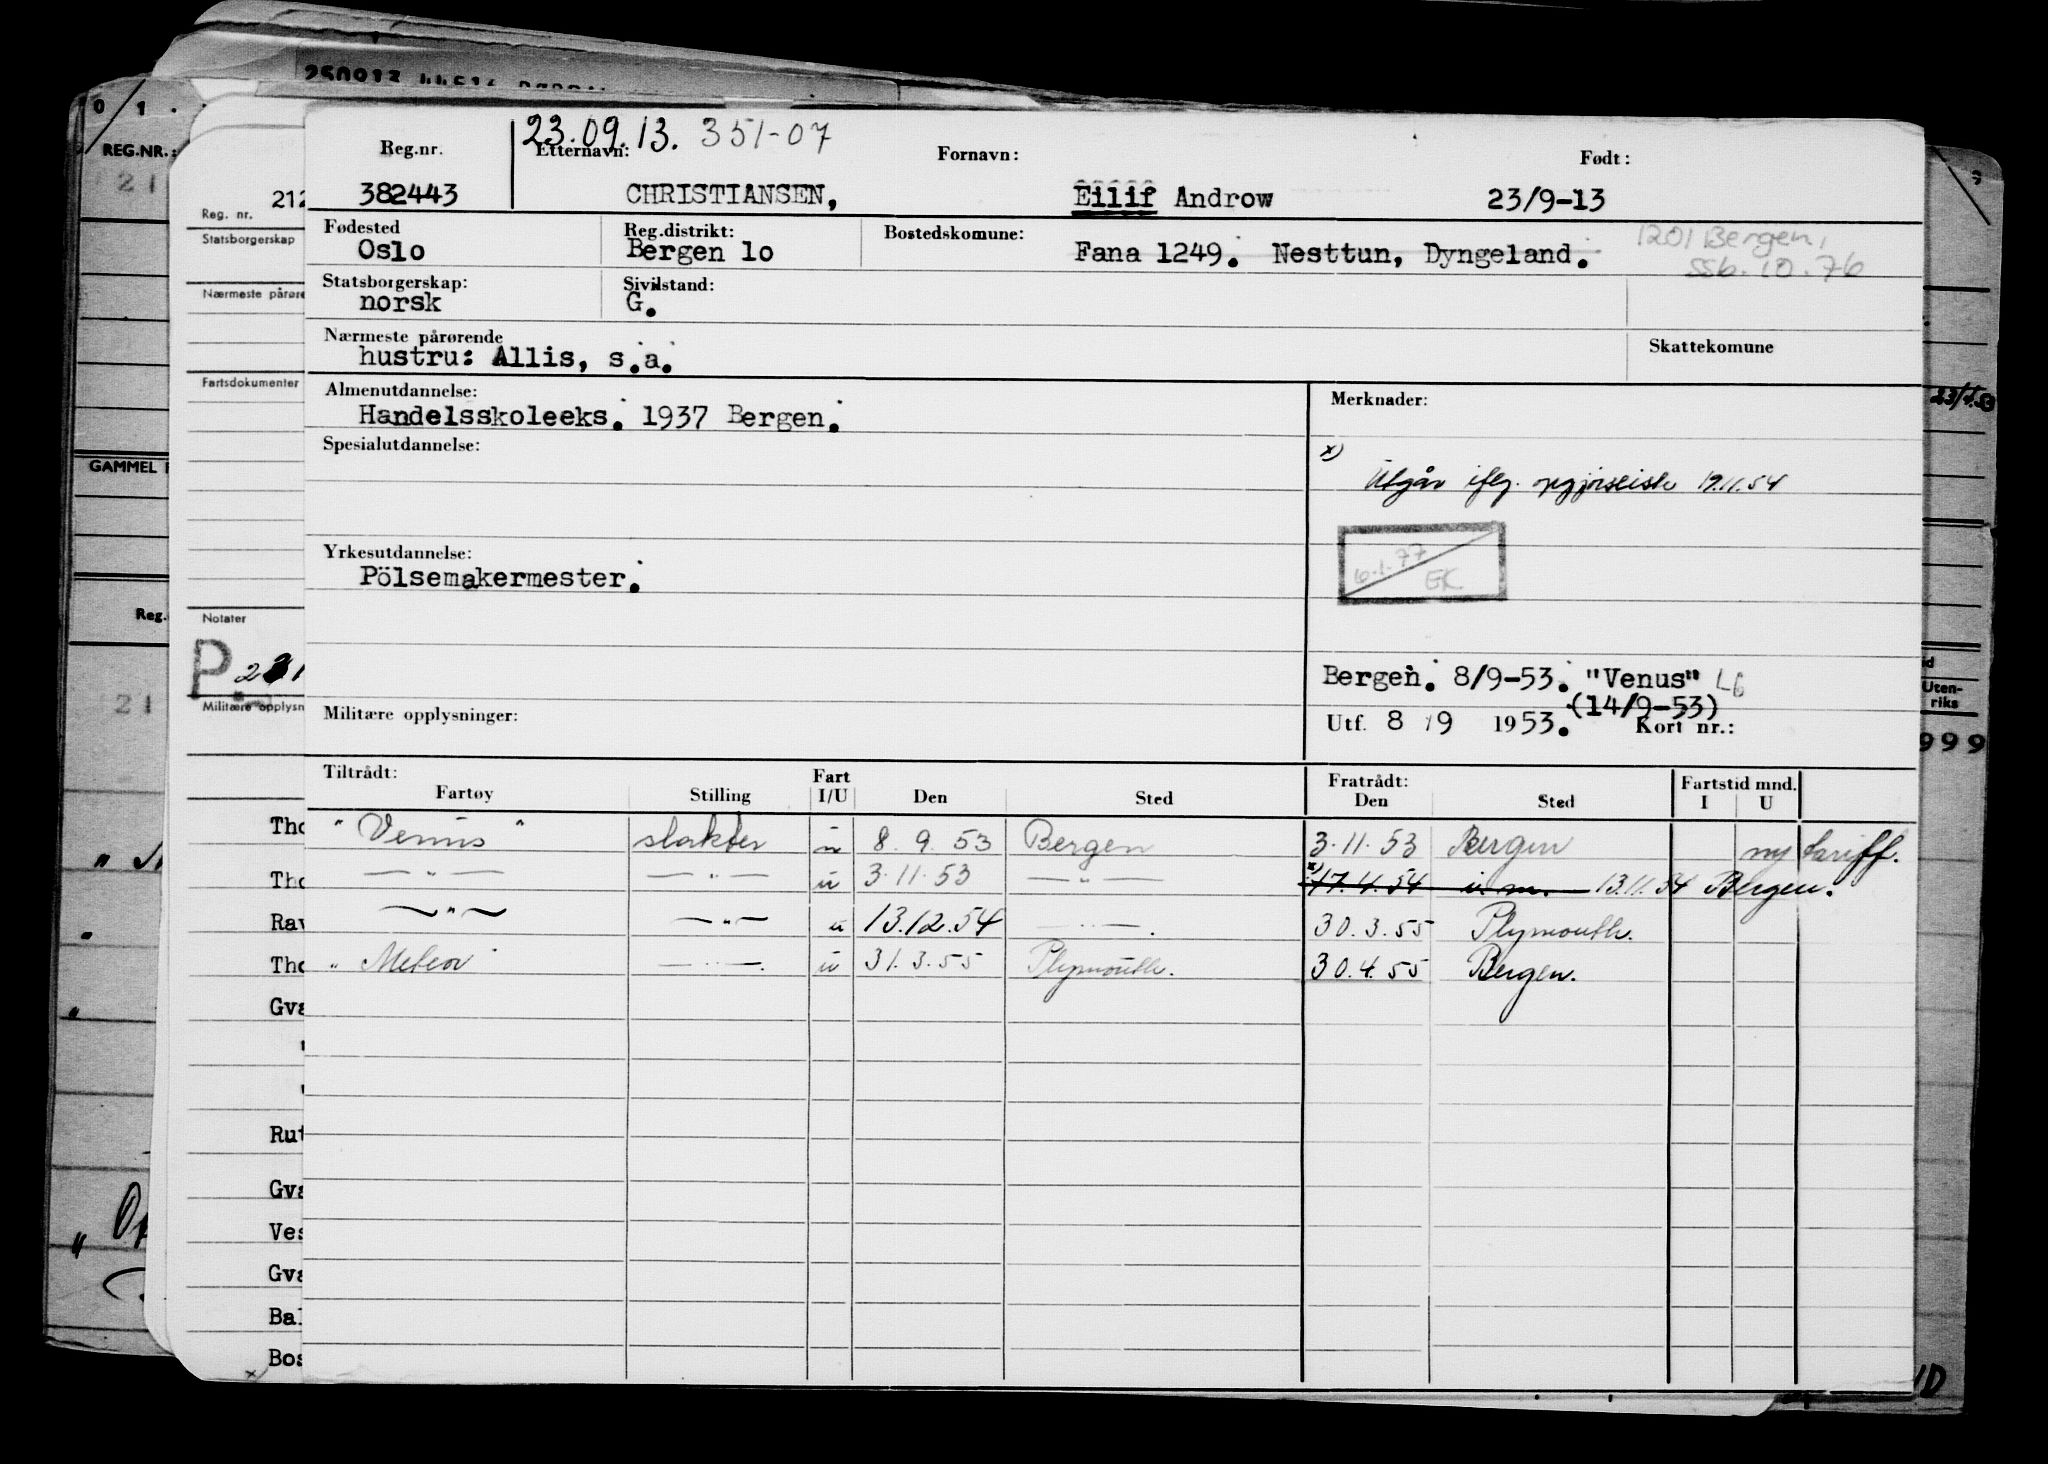 250913
0 1
REG.NR.:
21
212
Reg. nr.
Statsborgerskap
Nærmeste pårøre
Fartsdokumenter
GAMMEL
Reg.
Notater
P
Militære opplysn
21
23.09.13. 351-07
Reg.nr. Etternavn: Fornavn: Født:
382443 CHRISTIANSEN, Eilif Androw 23/9-13
Fødested Reg.distrikt: Bostedskomune:
Oslo Bergen 1o Fana 1249. Nesttun, Dyngeland. 1201 Bergen,
ssb. 10. 76
Statsborgerskap: Sivilstand:
norsk G.
Nærmeste pårørende Skattekomune
hustru: Allis, s.a.
Almenutdannelse: Merknader:
Handelsskoleeks. 1937 Bergen.
Spesialutdannelse:
x) Utgår iflg. oppgjørsliste 19.11.54
Yrkesutdannelse: 6.1.77
EK
Pölsemakermester.
Bergen. 8/9-53. "Venus" LG
(14/9-53)
Militære opplysninger: Utf. 8 / 9 1953. Kort nr.:
Tiltrådt: Fart Fratrådt: Fartstid mnd.
Fartøy Stilling I/U Den Sted Den Sted I U
"Venus" slakter u 8. 9. 53 Bergen 3. 11. 53 Bergen ny tariff.
— " — — " — u 3. 11. 53 — " — x) 17. 4. 54 u. m. 13.11.54 Bergen.
— " — — " — u 13.12.54 — " —. 30. 3. 55 Plymouth.
"Meteor" — " —. u 31. 3. 55 Plymouth. 30. 4. 55 Bergen.
Tho
Tho
Rav
Tho
Gva
Rut
Gva
Ves
Gva
Bal
Bos
x)
id
Uten-
riks
999